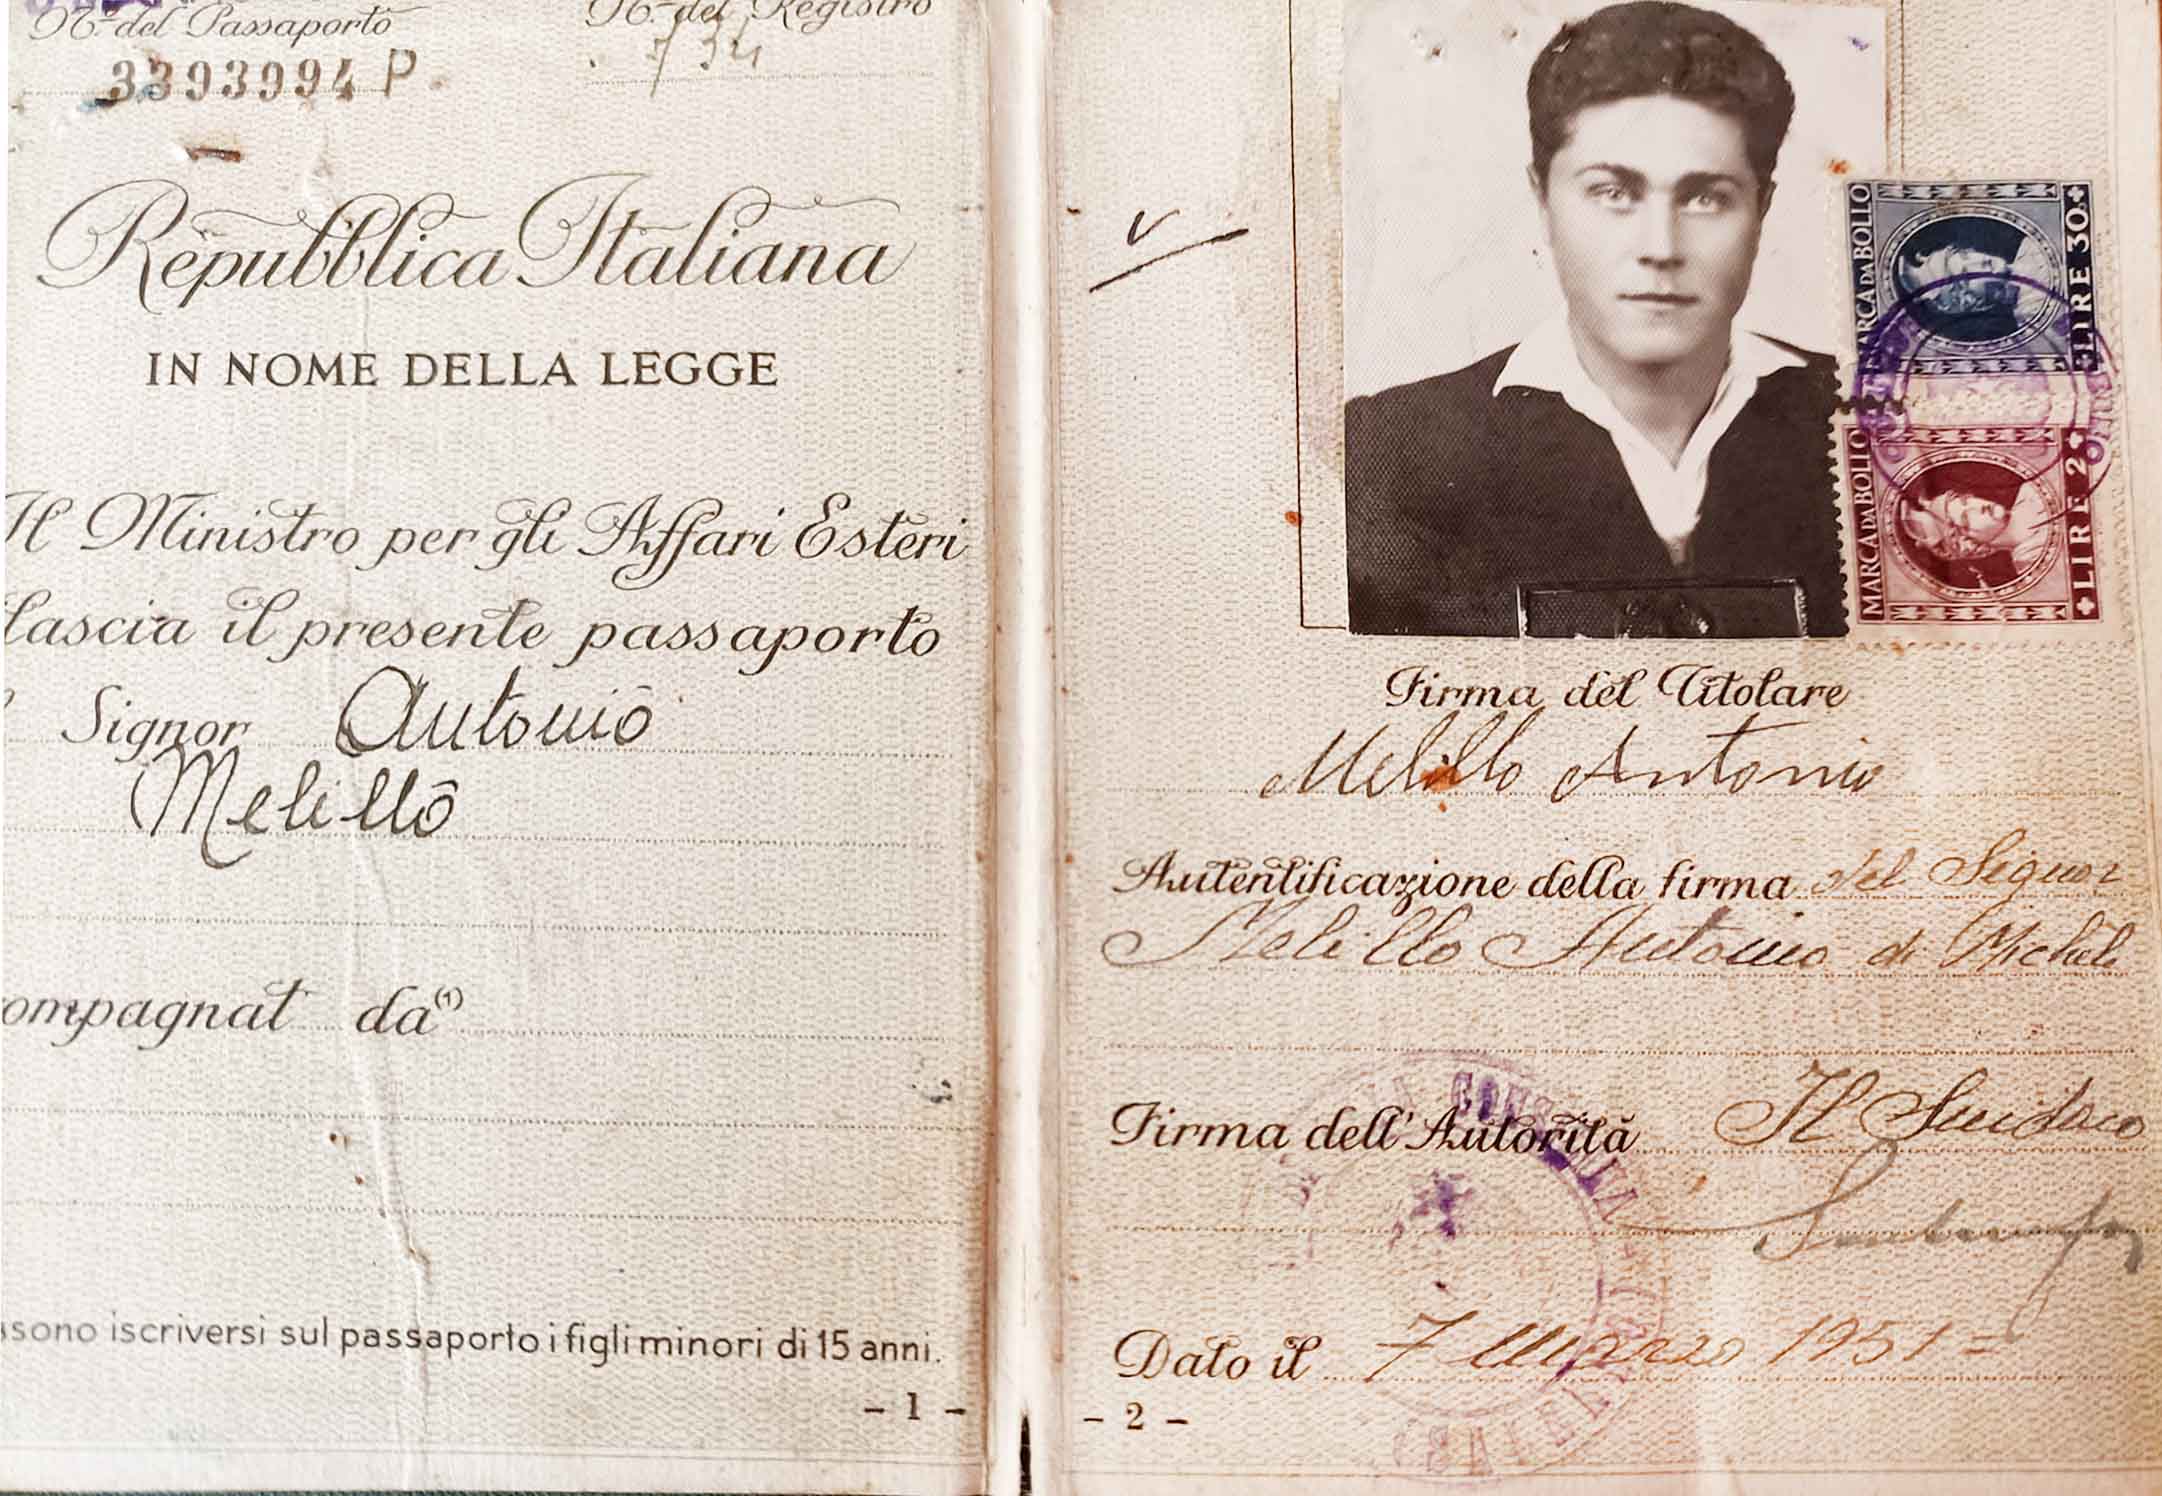 N.º del Passaporto
N.º del Registro
3393994 P.
734
Repubblica Italiana
IN NOME DELLA LEGGE
Il Ministro per gli Affari Esteri
ilascia il presente passaporto
Signor Antonio
Melillo
ompagnat da (1)
ssono iscriversi sul passaporto i figli minori di 15 anni.
- 1 -
V
MARCA DA BOLLO
LIRE 30
MARCA DA BOLLO
LIRE 2
Firma del Titolare
Melillo Antonio
Autentificazione della firma del Signor
Melillo Antonio di Michele
Firma dell'Autorità Il Sindaco
Dato il 7 Marzo 1951 =
- 2 -